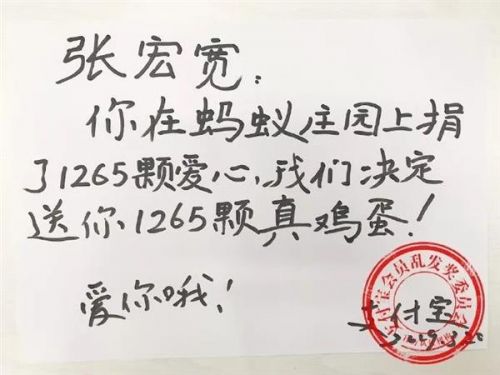 张宏宽:
你在蚂蚁庄园上捐
了1265颗爱心,我们决定
送你1265颗真鸡蛋!
爱你哦!
支付宝会员乱发奖委员会
支付宝